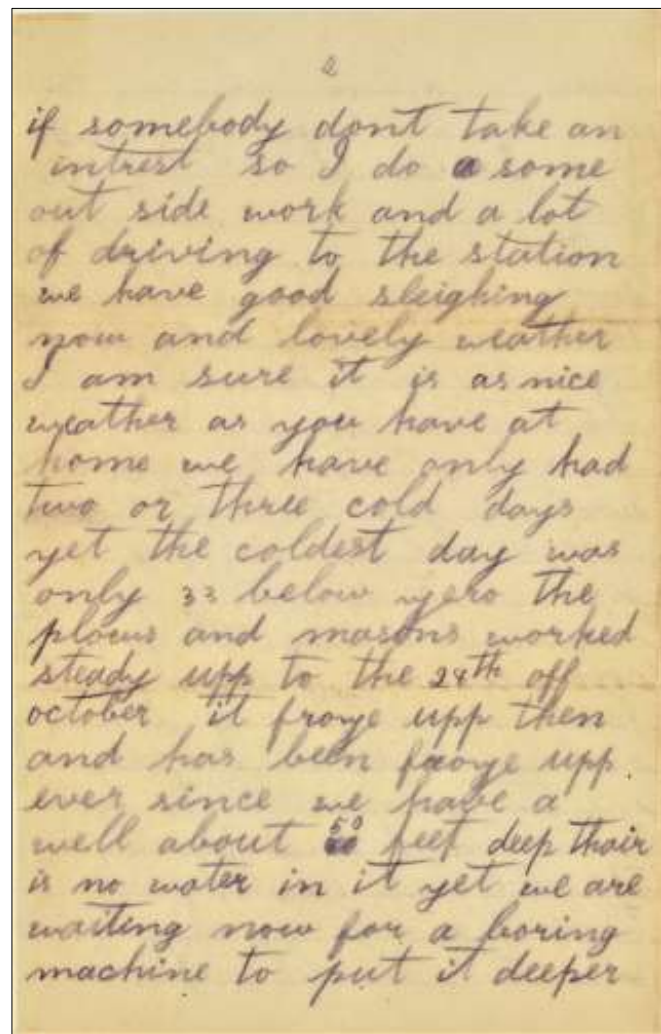 2
if somebody dont take an
intrest so I do a some
out side work and a lot
of driving to the station
we have good sleighing
now and lovely weather
I am sure it is as nice
weather as you have at
home we have only had
two or three cold days
yet the coldest day was
only 33 below zero the
plows and masons worked
steady upp to the 24th off
october it froze upp then
and has been froze upp
ever since we have a
well about 50 feet deep thair
is no water in it yet we are
waiting now for a boring
machine to put it deeper